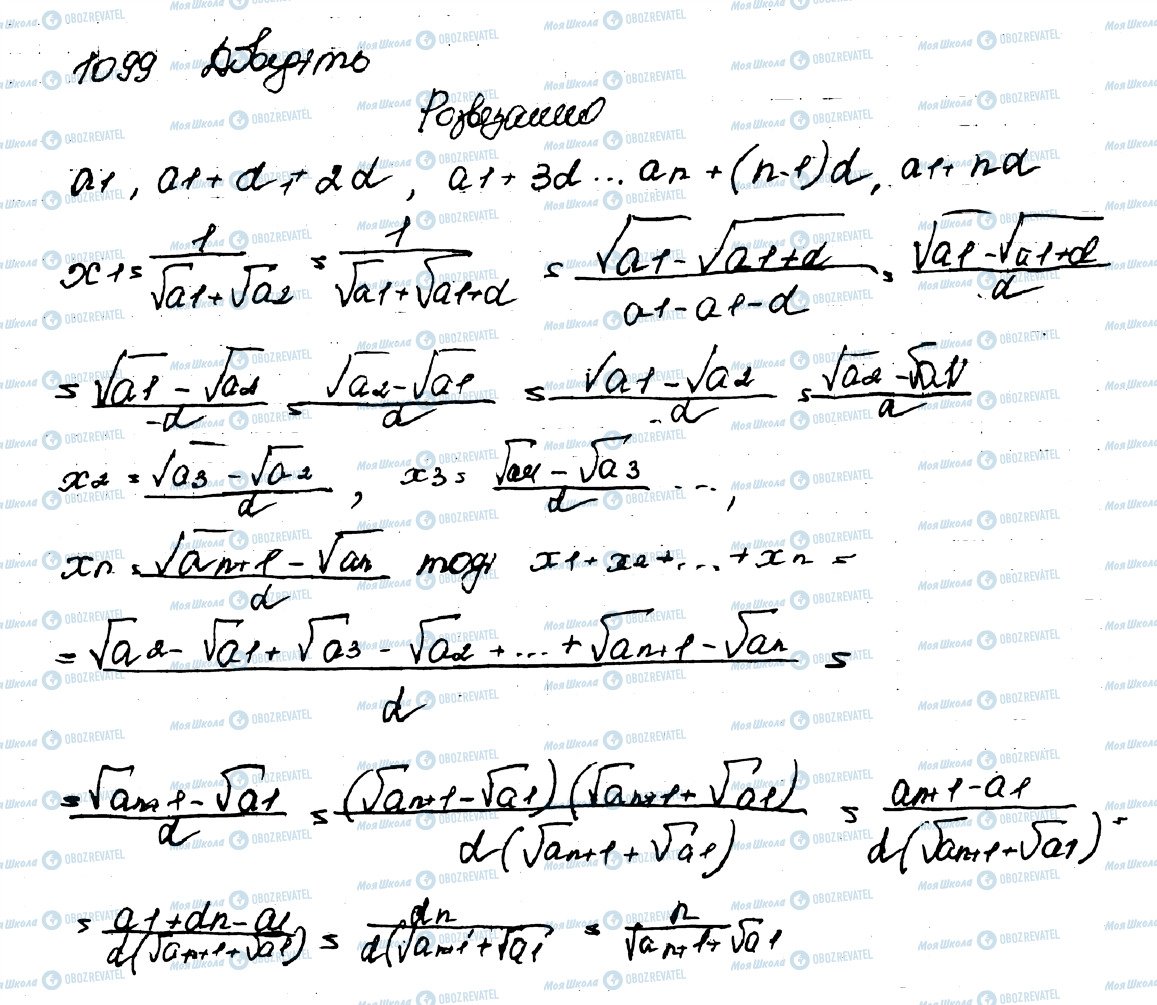 1099 Доведіть
Розвязанно
a1, a1 + d, + 2d, a1 + 3d ... an + (n-1)d, a1 + nd
x1 = 1/(√a1 + √a2) = 1/(√a1 + √a1+d) = (√a1 - √a1+d)/(a1 - a1 - d) = (√a1 - √a1+d)/(-d)
= (√a1 - √a2)/(-d) = (√a2 - √a1)/d = (√a1 - √a2)/(-d) = (√a2 - √a1)/a
x2 = (√a3 - √a2)/d, x3 = (√a4 - √a3)/d ...,
xn = (√an+1 - √an)/d тоді x1 + x2 + ... + xn =
= (√a2 - √a1 + √a3 - √a2 + ... + √an+1 - √an)/d =
= (√an+1 - √a1)/d = (√an+1 - √a1)(√an+1 + √a1)/d(√an+1 + √a1) = (an+1 - a1)/d(√an+1 + √a1) =
= (a1 + dn - a1)/d(√an+1 + √a1) = dn/d(√an+1 + √a1 = n/(√an+1 + √a1)
Моя Школа OBOZREVATEL